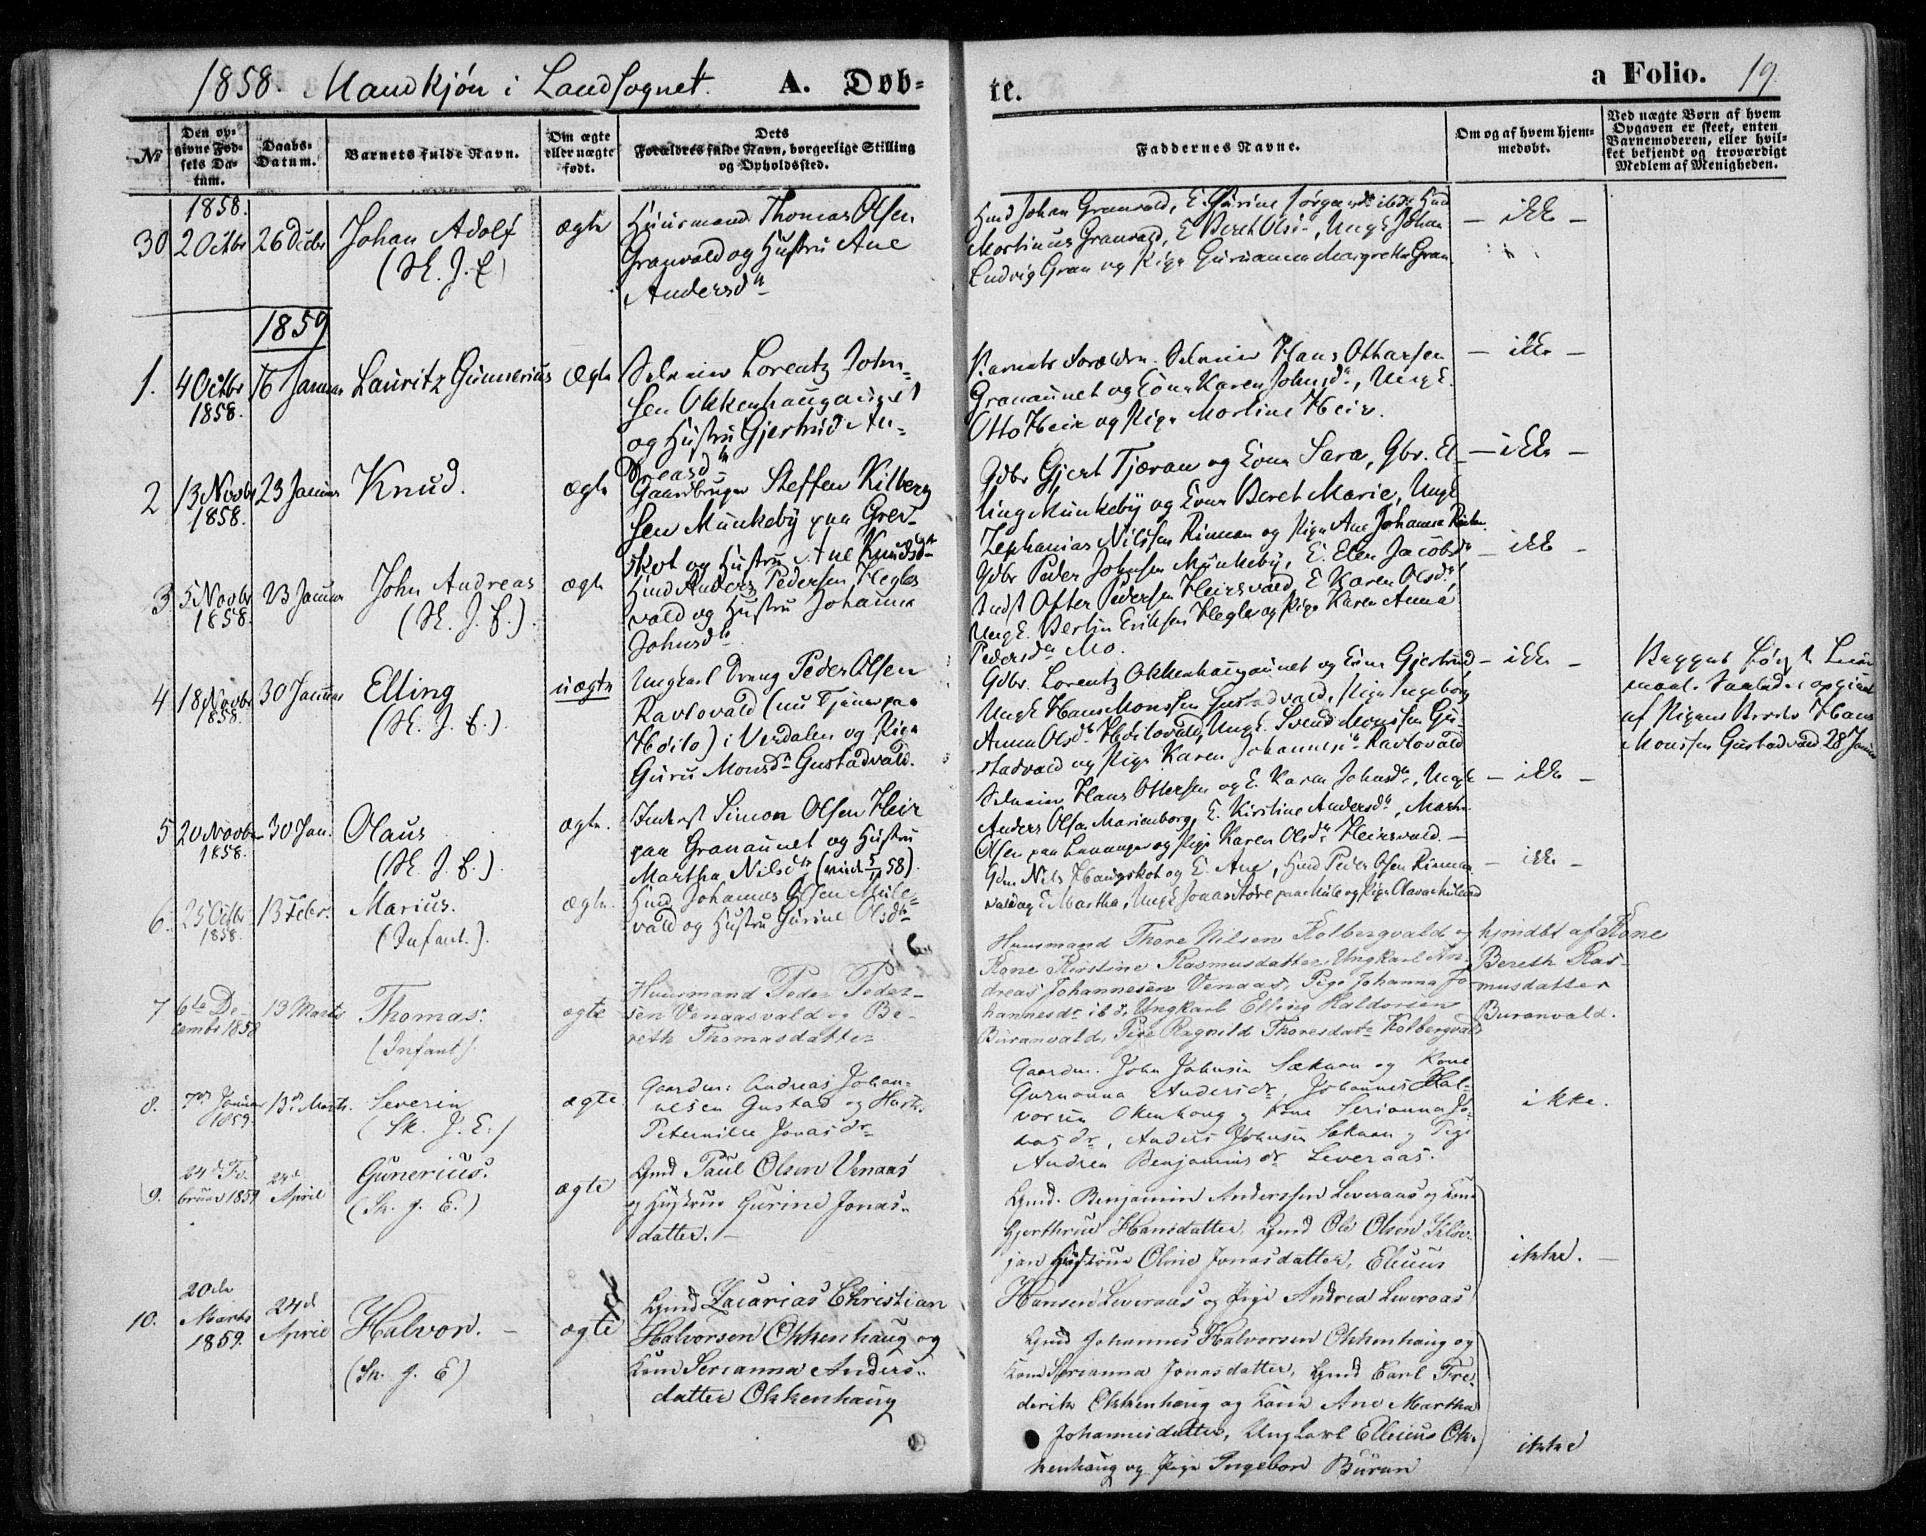 1858. Mandkjøn i Landsognet. A. Døb-
te. a Folio. 19.
No
Den op-
givne Fød-
sels Da-
tum.
Daabs-
Datum.
Barnets fulde Navn.
Om ægte
eller uægte
født.
Dets
Forældres fulde Navn, borgerlige Stilling
og Opholdssted.
Faddernes Navne.
Om og af hvem hjem-
medøbt.
Ved uægte Børn af hvem
Opgaven er skeet, enten
Barnemoderen, eller hvil-
ket bekjendt og troværdigt
Medlem af Menigheden.
1858.
30 2 Octbr 26 Decbr Johan Adolf ægte
(Sk. J. E.)
Huusmand Thomas Olsen
Granvald og Hustru Ane
Andersdtr
Hmd Johan Granvald, E. Gurine
Martinus Granvald, E. Beret Olsdr, Ungk. Johan
Ludvig Gran og Pige Gurianna Margretha Gran
- ikke -
1859
1. 4 Octbr 16 Januar Lauritz Gunnerius ægte
1858.
Selveier Lorentz John-
sen Okkenhaugaunet
og Hustru Gjertrud An-
dreasdtr
Barnets Forældre. Selveier Hans Ottersen
Granaunet og Kone Karen Johnsdr, Ungk.
Otto Heir og Pige Martine Heir.
- ikke -
2 13 Novbr 23 Januar Knud. ægte
1858.
Gaardbruger Steffen Kilberg
sen Munkeby paa Grev-
skot og Hustru Ane Knudsdtr
Gdbr Gjert Tjæran og Kone Sara, Gbr. El-
ling Munkeby og Kone Beret Marie, Ungk
Zephanias Nilssen Rinnan og Pige Ane Johanna
- ikke -
3 5 Novbr 23 Januar John Andreas ægte
1858. (Sk. J. E.).
Hmd Anders Pedersen Hegle-
vald og Hustru Johanna
Johnsdtr
Gdbr Peder Johnsen Munkeby, E. Elen Jacobsdr
Indst Ofter Pedersen Heirsvald, E Karen Olsdr,
Ungk. Bertin Eriksen Hegle og Pige Karen Anna
Pedersdr Mo.
- ikke -
4 18 Novbr 30 Januar Elling uægte
1858. (Sk. J. E.).
Ungkarl Dreng Peder Olsen
Ravlovald (nu Tjener paa
) i Verdalen og Pige
Guru Monsdr Gustadvald.
Gdbr. Lorentz Okkenhaugaunet og Kone Gjertrud,
Ungk Hans Monssen Gustadvald, Pige Ingeborg
Anna Olsdr, Ungk. Svend Monssen Gu-
stadvald og Pige Karen Johannesdr Ravlovald
- ikke -
Begges første Leier-
maal. Saaledes opgivet
af Pigens Broder Hans
Monssen Gustadvald 28 Januar
5 20 Novbr 30 Jan. Olaus ægte.
1858. (Sk. J. E.).
Inderst Simon Olsen Heir
paa Granaunet og Hustru
Martha Nilsdtr
Selveier Hans Ottersen og E. Karen Johnsdr, Ungk
Anders Olsen Marienborg, E. Kirstine Andersdr,
Olsen paa Levanger og Pige Karen Olsdr Heirsvald.
- ikke -
6. 25 Octbr 13 Febr. Marius. ægte.
1858. (Infant.).
Hmd Johannes Olsen Mule-
vald og Hustru Gurine Olsdtr
Gdm Nils Haugskot og E. Ane, Hmd Peder Olsen Rinnan
vald og E Martha, Ungk Jonas Støre paa Mule og Pige Olava Mulevald
- ikke -
7 6te De- 13 Marts Thomas. ægte
cembr 1858 (Infant).
Huusmand Peder Peder-
sen Venaasvald og Be-
reth Thomasdatter
Huusmand Thore Nilsen Kolbergvald og
Kone Kirstine Rasmusdatter, Ungkarl An-
dreas Johannesen Venaas, Pige Johanna Jo-
hannesdr ibd. Ungkarl Elling Haldorsen
Buranvald, Pige Ragnild Thoresdatr Kolbergvald
hjmdbt af Kone
Bereth Ras-
musdatter
Buranvald.
8. 7de Januar 13de Marts. Severin ægte
1859. (Sk. J. E.)
Gaardm: Andreas Johan-
nesen Gustad og Hustr.
Peternille Jonasdr
Gaardm. John Johnsen Sæknan og Kone
Gurnanna Andersdr, Johannes Hal-
vorsen Okenhoug og Kone Serianna Jo-
nasdr, Anders Johnsen Sæknan og Pige
Andrea Benjaminsdr Leveraas.
ikke.
9. 24de Fe- 24d Gunerius. ægte
bruar 1859 April (Sk. J. E.)
Gmd Paul Olsen Venaas
og Hustrue Gurine Jonas-
datter. -
Gmd. Benjamin Anderssen Leveraas og Kone
Gjerthrud Hansdatter, Gmd Ole Olsen
jan Hustrue Oline Jonasdatter, Elnius
Hansen Leveraas og Pige Andrea Leveraas
ikke. -
10. 20de 24d Halvor. - ægte
Marts April
1859. (Sk. J. E)
Gmd Zacarias Christian
Halvorsen Okkenhaug og
Kone Serianna Anders-
datter Okkenhaug
Gmd Johannes Halvorsen Okkenhaug og
Kone Serianna Jonasdatter, Gmd Carl Fre-
derik Okkenhaug og Kone Ane Martha
Johannesdatter, Ungkarl Ellius Ok-
kenhaug og Pige Ingebor Buran
ikke